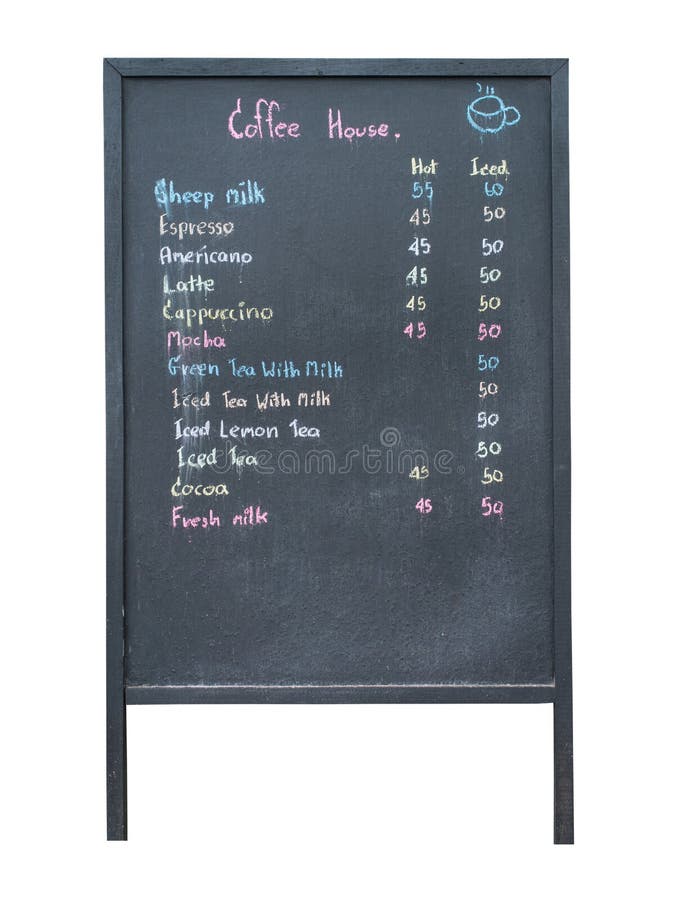 Coffee House.
Hot Iced
Sheep milk 55 60
Espresso 45 50
Americano 45 50
Latte 45 50
Cappuccino 45 50
Mocha 45 50
Green Tea With Milk 50
Iced Tea With Milk 50
Iced Lemon Tea 50
Iced Tea 50
Cocoa 45 50
Fresh milk 45 50
dreamstime